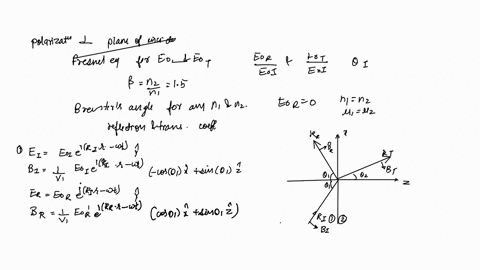 polarizatn ⊥ plane of
Fresnel eq for E₀ᵣ & E₀ₜ
E₀R/E₀I & E₀T/E₀I θI
β = n₂/n₁ = 1.5
Brewster's angle for any n₁ & n₂.
E₀R = 0 n₁ = n₂
μ₁ = μ₂
reflection & trans. coeff
① EI = E₀I e^i(kI·r-ωt) ŷ
BI = 1/V₁ E₀I e^i(kI·r-ωt) (-cosθ₁) x̂ + sin(θ₁) ẑ
ER = E₀R e^i(kR·r-ωt) ŷ
BR = 1/V₁ E₀R e^i(kR·r-ωt) (cosθ₁) x̂ + sinθ₁ ẑ)
KR
BR
x
KT
BT
θ₁
θ₂
z
θ₁
KI
BI
① ②